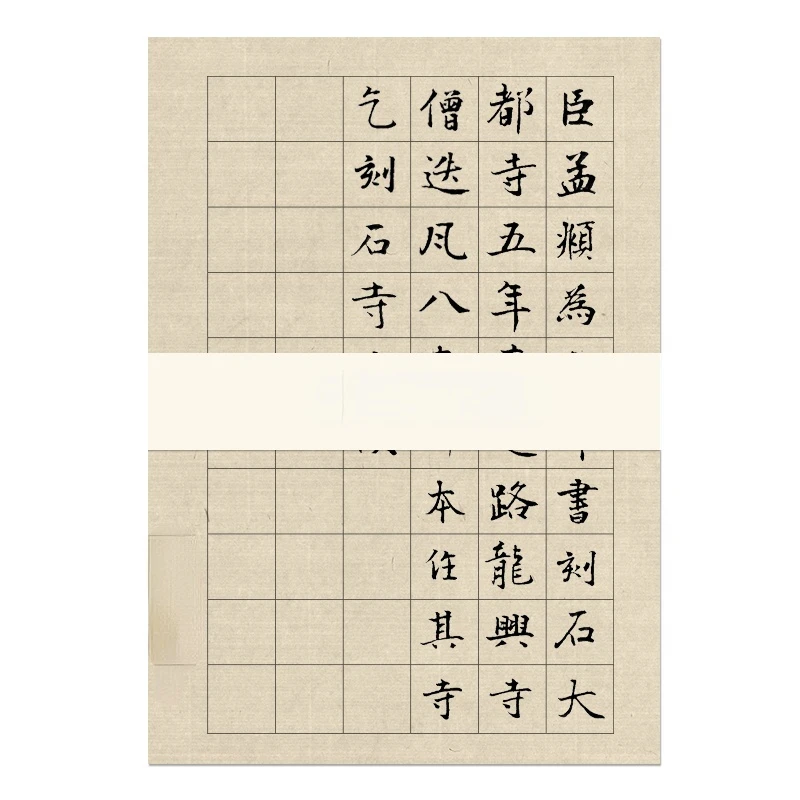 臣孟頫為書刻石大
都寺五年路龍興寺
僧迭凡八本住其寺
乞刻石寺